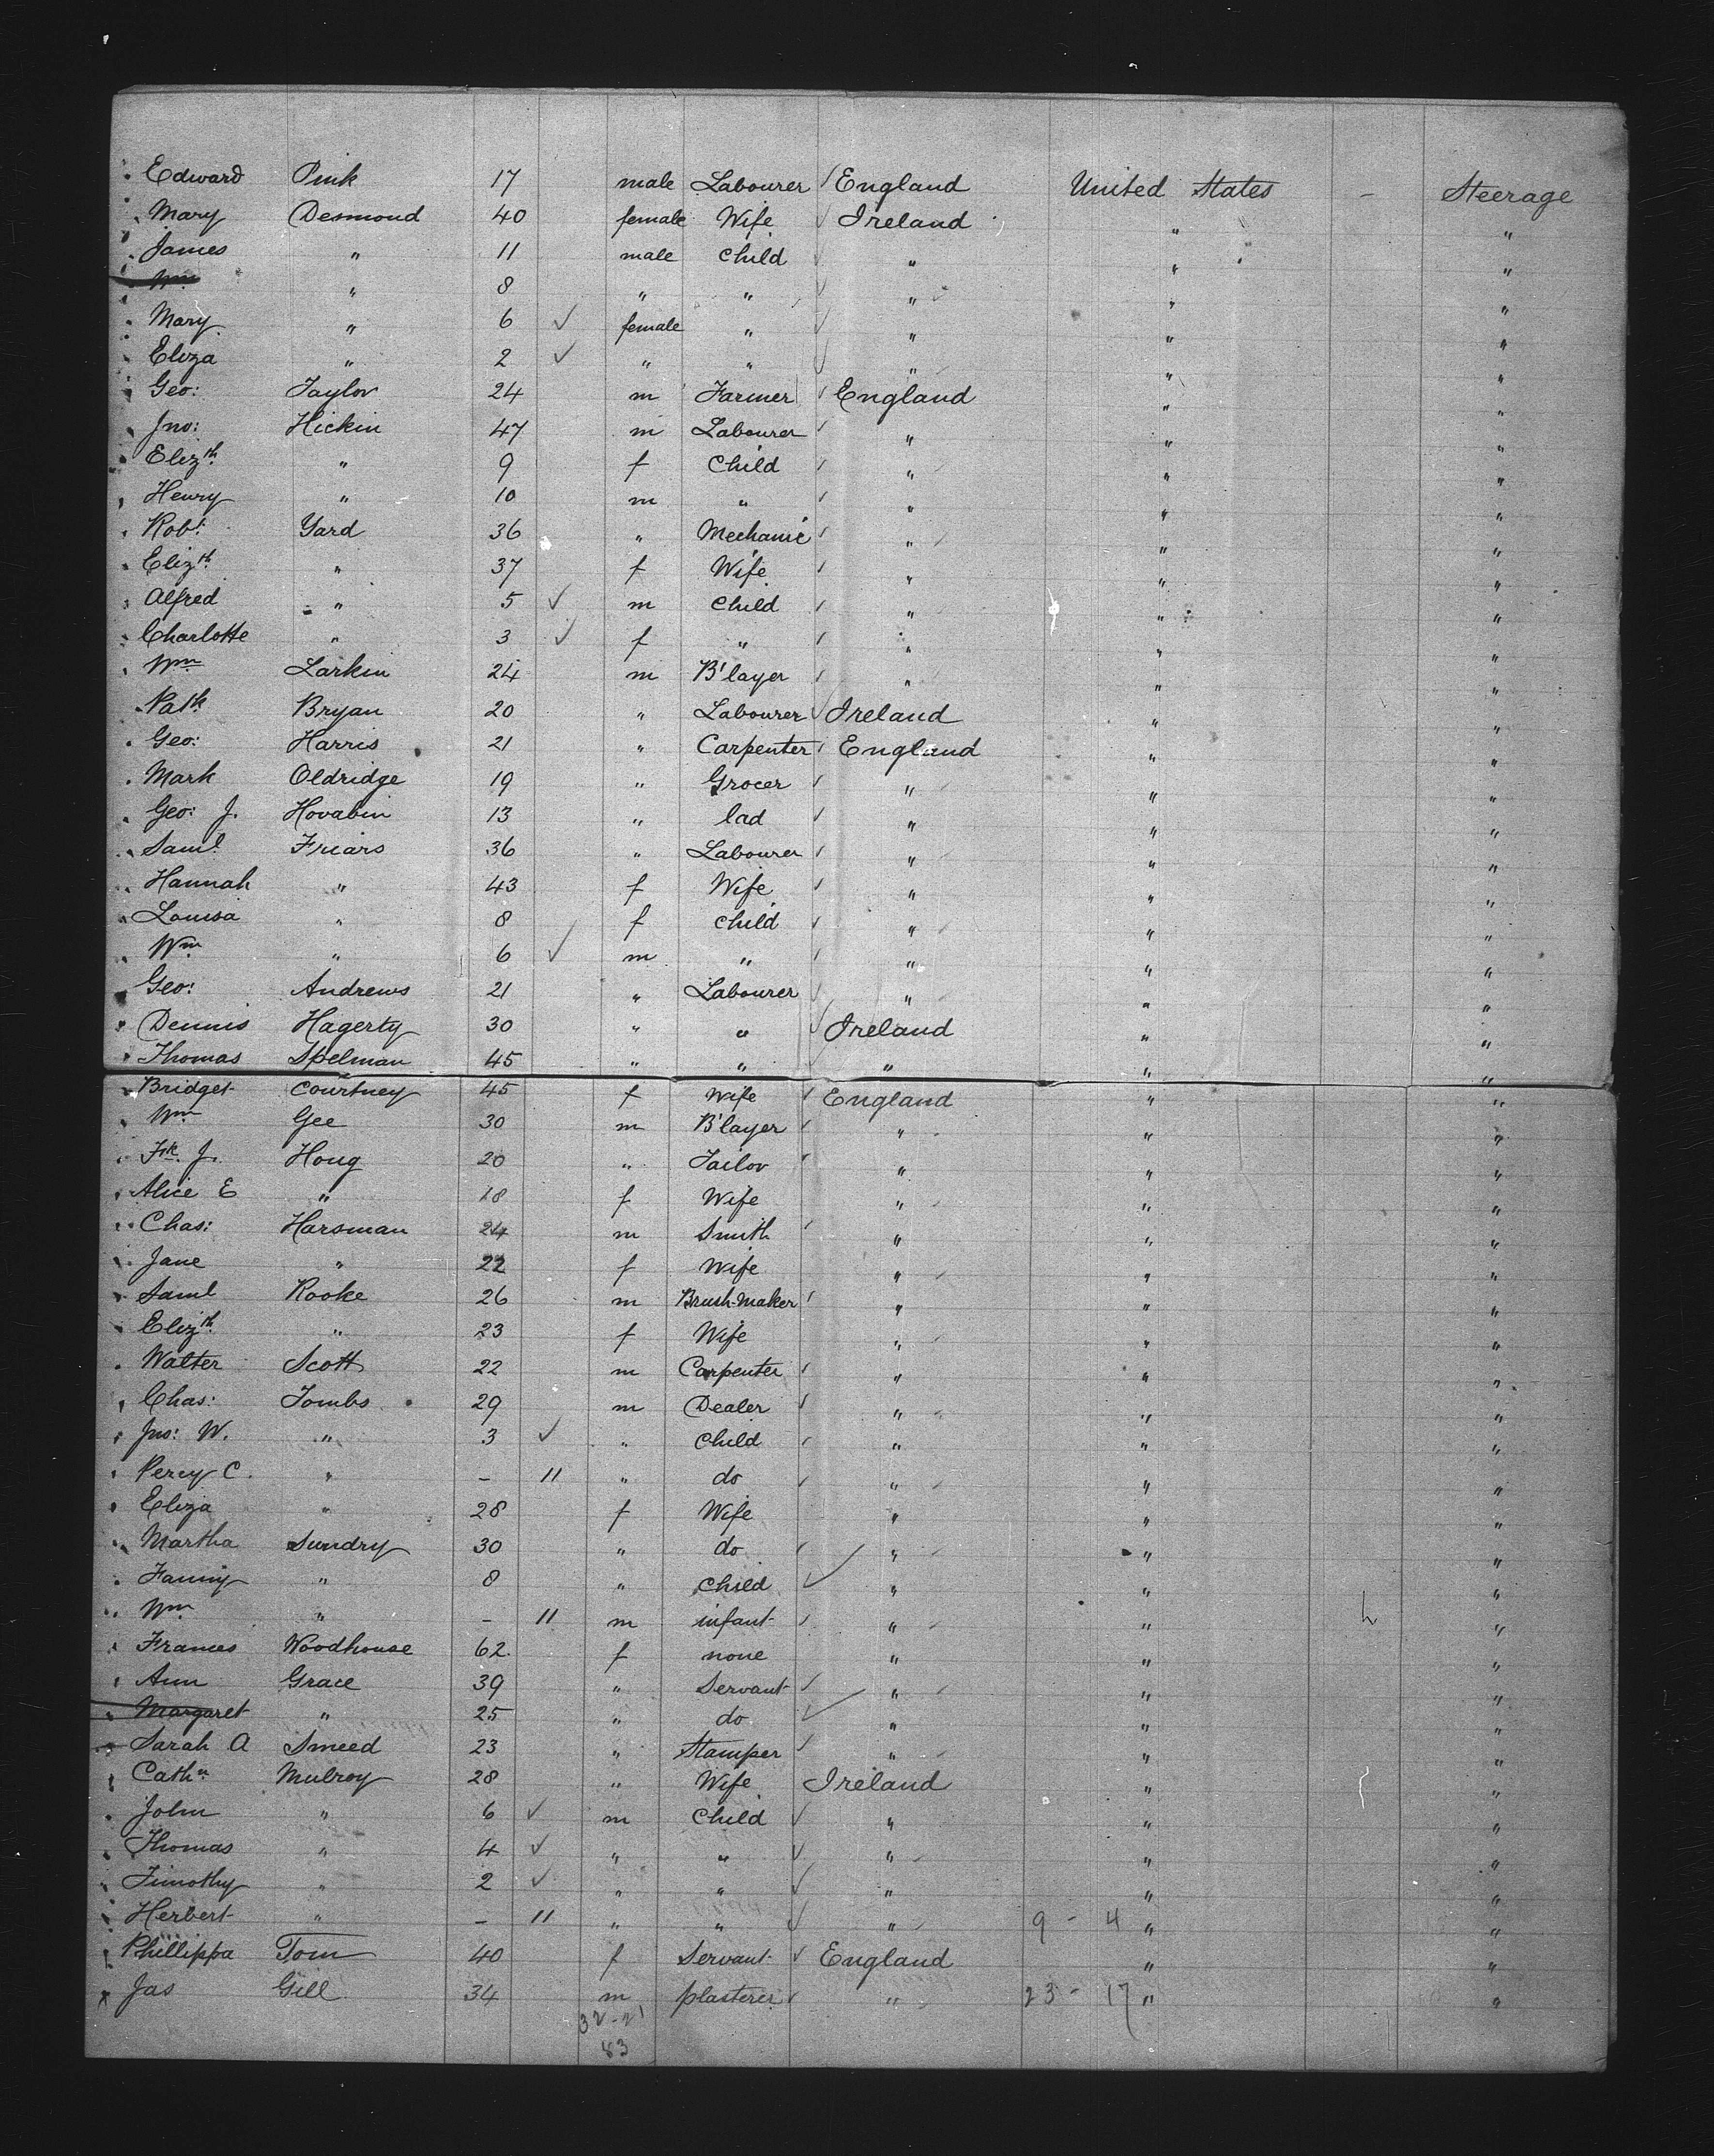 Edward Pink 17 male Labourer England United States - Steerage
Mary Desmond 40 female Wife Ireland " "
James " 11 male Child " " "
Wm " 8 " " " " "
Mary " 6 ✓ female " " " "
Eliza " 2 ✓ " " " " "
Geo: Taylor 24 m Farmer England " "
Jno: Hickin 47 m Labourer " " "
Elizth " 9 f Child " " "
Henry " 10 m " " " "
Robt Yard 36 " Mechanic " " "
Elizth " 37 f Wife " " "
Alfred " 5 ✓ m Child " " "
Charlotte " 3 ✓ f " " " "
Wm Larkin 24 m B'layer " " "
Patk Bryan 20 " Labourer Ireland " "
Geo: Harris 21 " Carpenter England " "
Mark Oldridge 19 " Grocer " " "
Geo: J. Hovabin 13 " lad " " "
Saml Friars 36 " Labourer " " "
Hannah " 43 f Wife " " "
Louisa " 8 f Child " " "
Wm " 6 ✓ m " " " "
Geo: Andrews 21 " Labourer " " "
Dennis Hagerty 30 " " Ireland " "
Thomas Spelman 45 " " " " "
Bridget Courtney 45 f Wife England " "
Wm Gee 30 m B'layer " " "
Frk. J. Houg 20 " Tailor " " "
Alice E " 18 f Wife " " "
Chas: Harsman 24 m Smith " " "
Jane " 22 f Wife " " "
Saml Rooke 26 m Brush-Maker " " "
Elizth " 23 f Wife " " "
Walter Scott 22 m Carpenter " " "
Chas: Tombs 29 m Dealer " " "
Jno: W. " 3 ✓ " Child " " "
Percy C. " - 11 " do " " "
Eliza " 28 f Wife " " "
Martha Sundry 30 " do " " "
Fanny " 8 " Child " " "
Wm " - 11 m infant " " "
Frances Woodhouse 62 f none " " "
Ann Grace 39 " Servant " " "
Margaret " 25 " do " " "
Sarah A Smeed 23 " Stamper " " "
Cathn Mulroy 28 " Wife Ireland " "
John " 6 ✓ m Child " " "
Thomas " 4 ✓ " " " " "
Timothy " 2 ✓ " " " " "
Herbert " - 11 " " " 9 - 4 " "
Phillippa Tom 40 f Servant England " "
Jas Gill 34 m plasterer " 23 - 17 " "
32-21
53